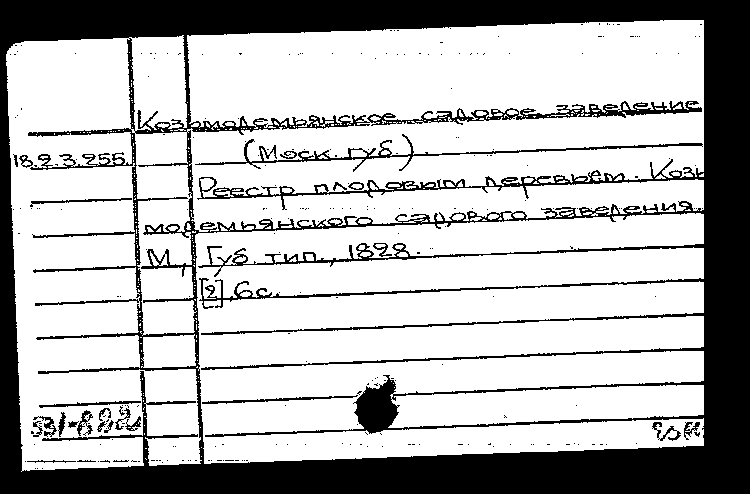 Козьмодемьянское садовое заведение
18.2.3.255.
(Моск. губ.).
Реестр плодовым деревьем. Козь
модемьянского садового заведения.
М., Губ. тип., 1828.
[2], 6 с.